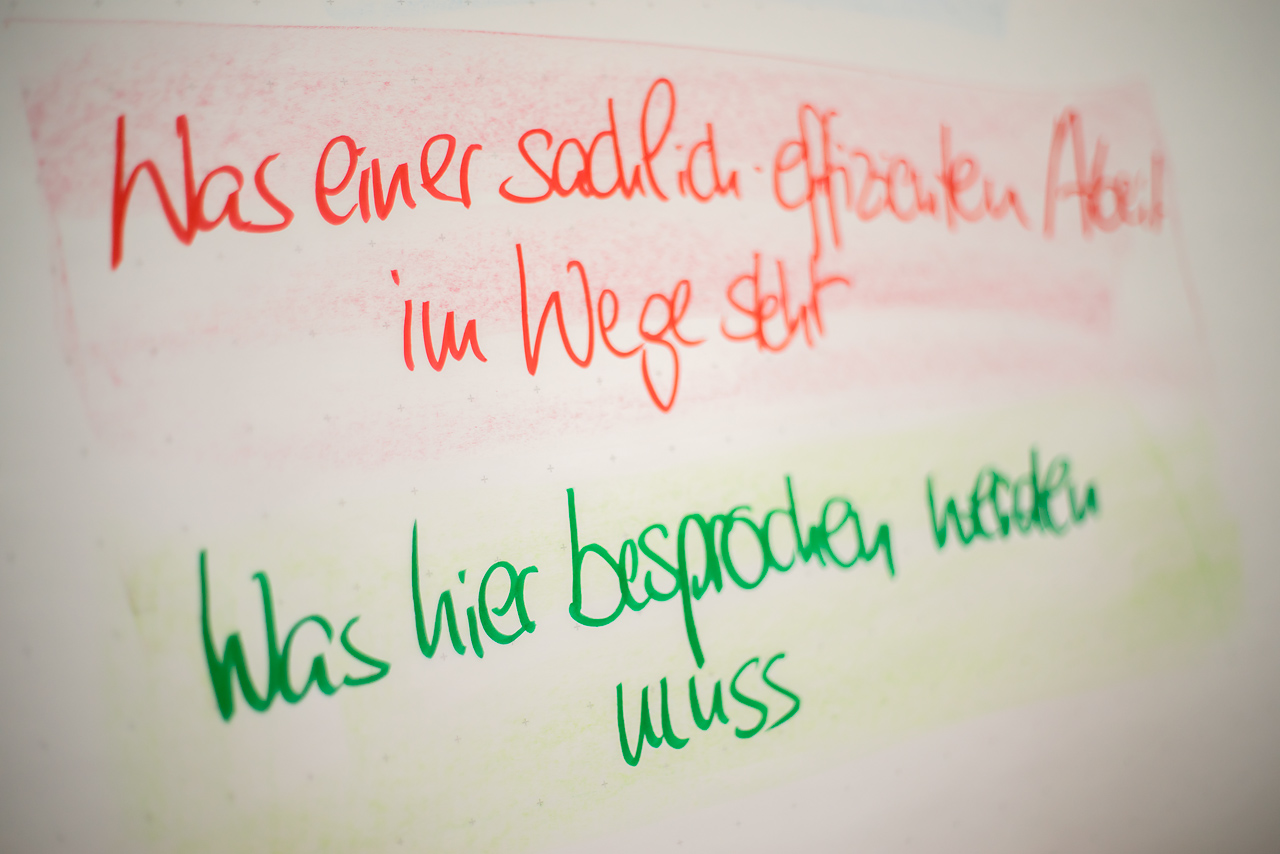 Was einer sachlich-effizienten Arbeit
im Wege steht
Was hier besprochen werden
muss